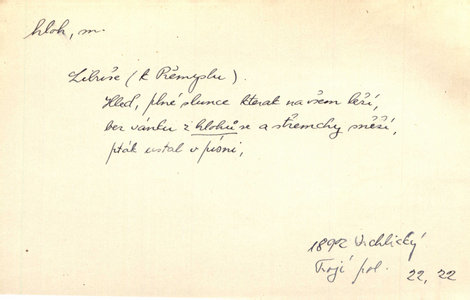 hloh, m.
Libuše (k Přemyslu).
Hleď, plné slunce kterak na všem leží,
bez vánku z hlohů se a střemchy sněží,
pták ustal v písni,
1892 Vrchlický
Trojí pol. 22, 22